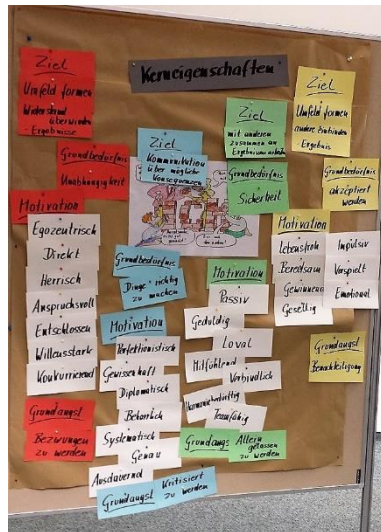 Kerneigenschaften
Ziel
Umfeld formen
Widerstand
überwinden
- Ergebnisse
Grundbedürfnis
Unabhängigkeit
Motivation
Egozentrisch
Direkt
Herrisch
Anspruchsvoll
Entschlossen
Willensstark
Konkurrierend
Grundangst
Bezwungen
zu werden
Ziel
Kommunikation
über mögliche
Konsequenzen
Grundbedürfnis
Dinge richtig
zu machen
Motivation
Perfektionistisch
Gewissenhaft
Diplomatisch
Beharrlich
Systematisch
Genau
Ausdauernd
Grundangst
Kritisiert
zu werden
Ziel
mit anderen
zusammen an
Ergebnissen arbeiten
Grundbedürfnis
Sicherheit
Motivation
Passiv
Geduldig
Loyal
Hilfsbereit
Verbindlich
Teamfähig
Grundangst
Allein
gelassen
zu werden
Ziel
Umfeld formen
andere einbinden
- Ergebnis
Grundbedürfnis
akzeptiert
werden
Motivation
Lebensfroh
Impulsiv
Beredsam
Verspielt
Gewinnend
Emotional
Gesellig
Grundangst
Benachteiligung